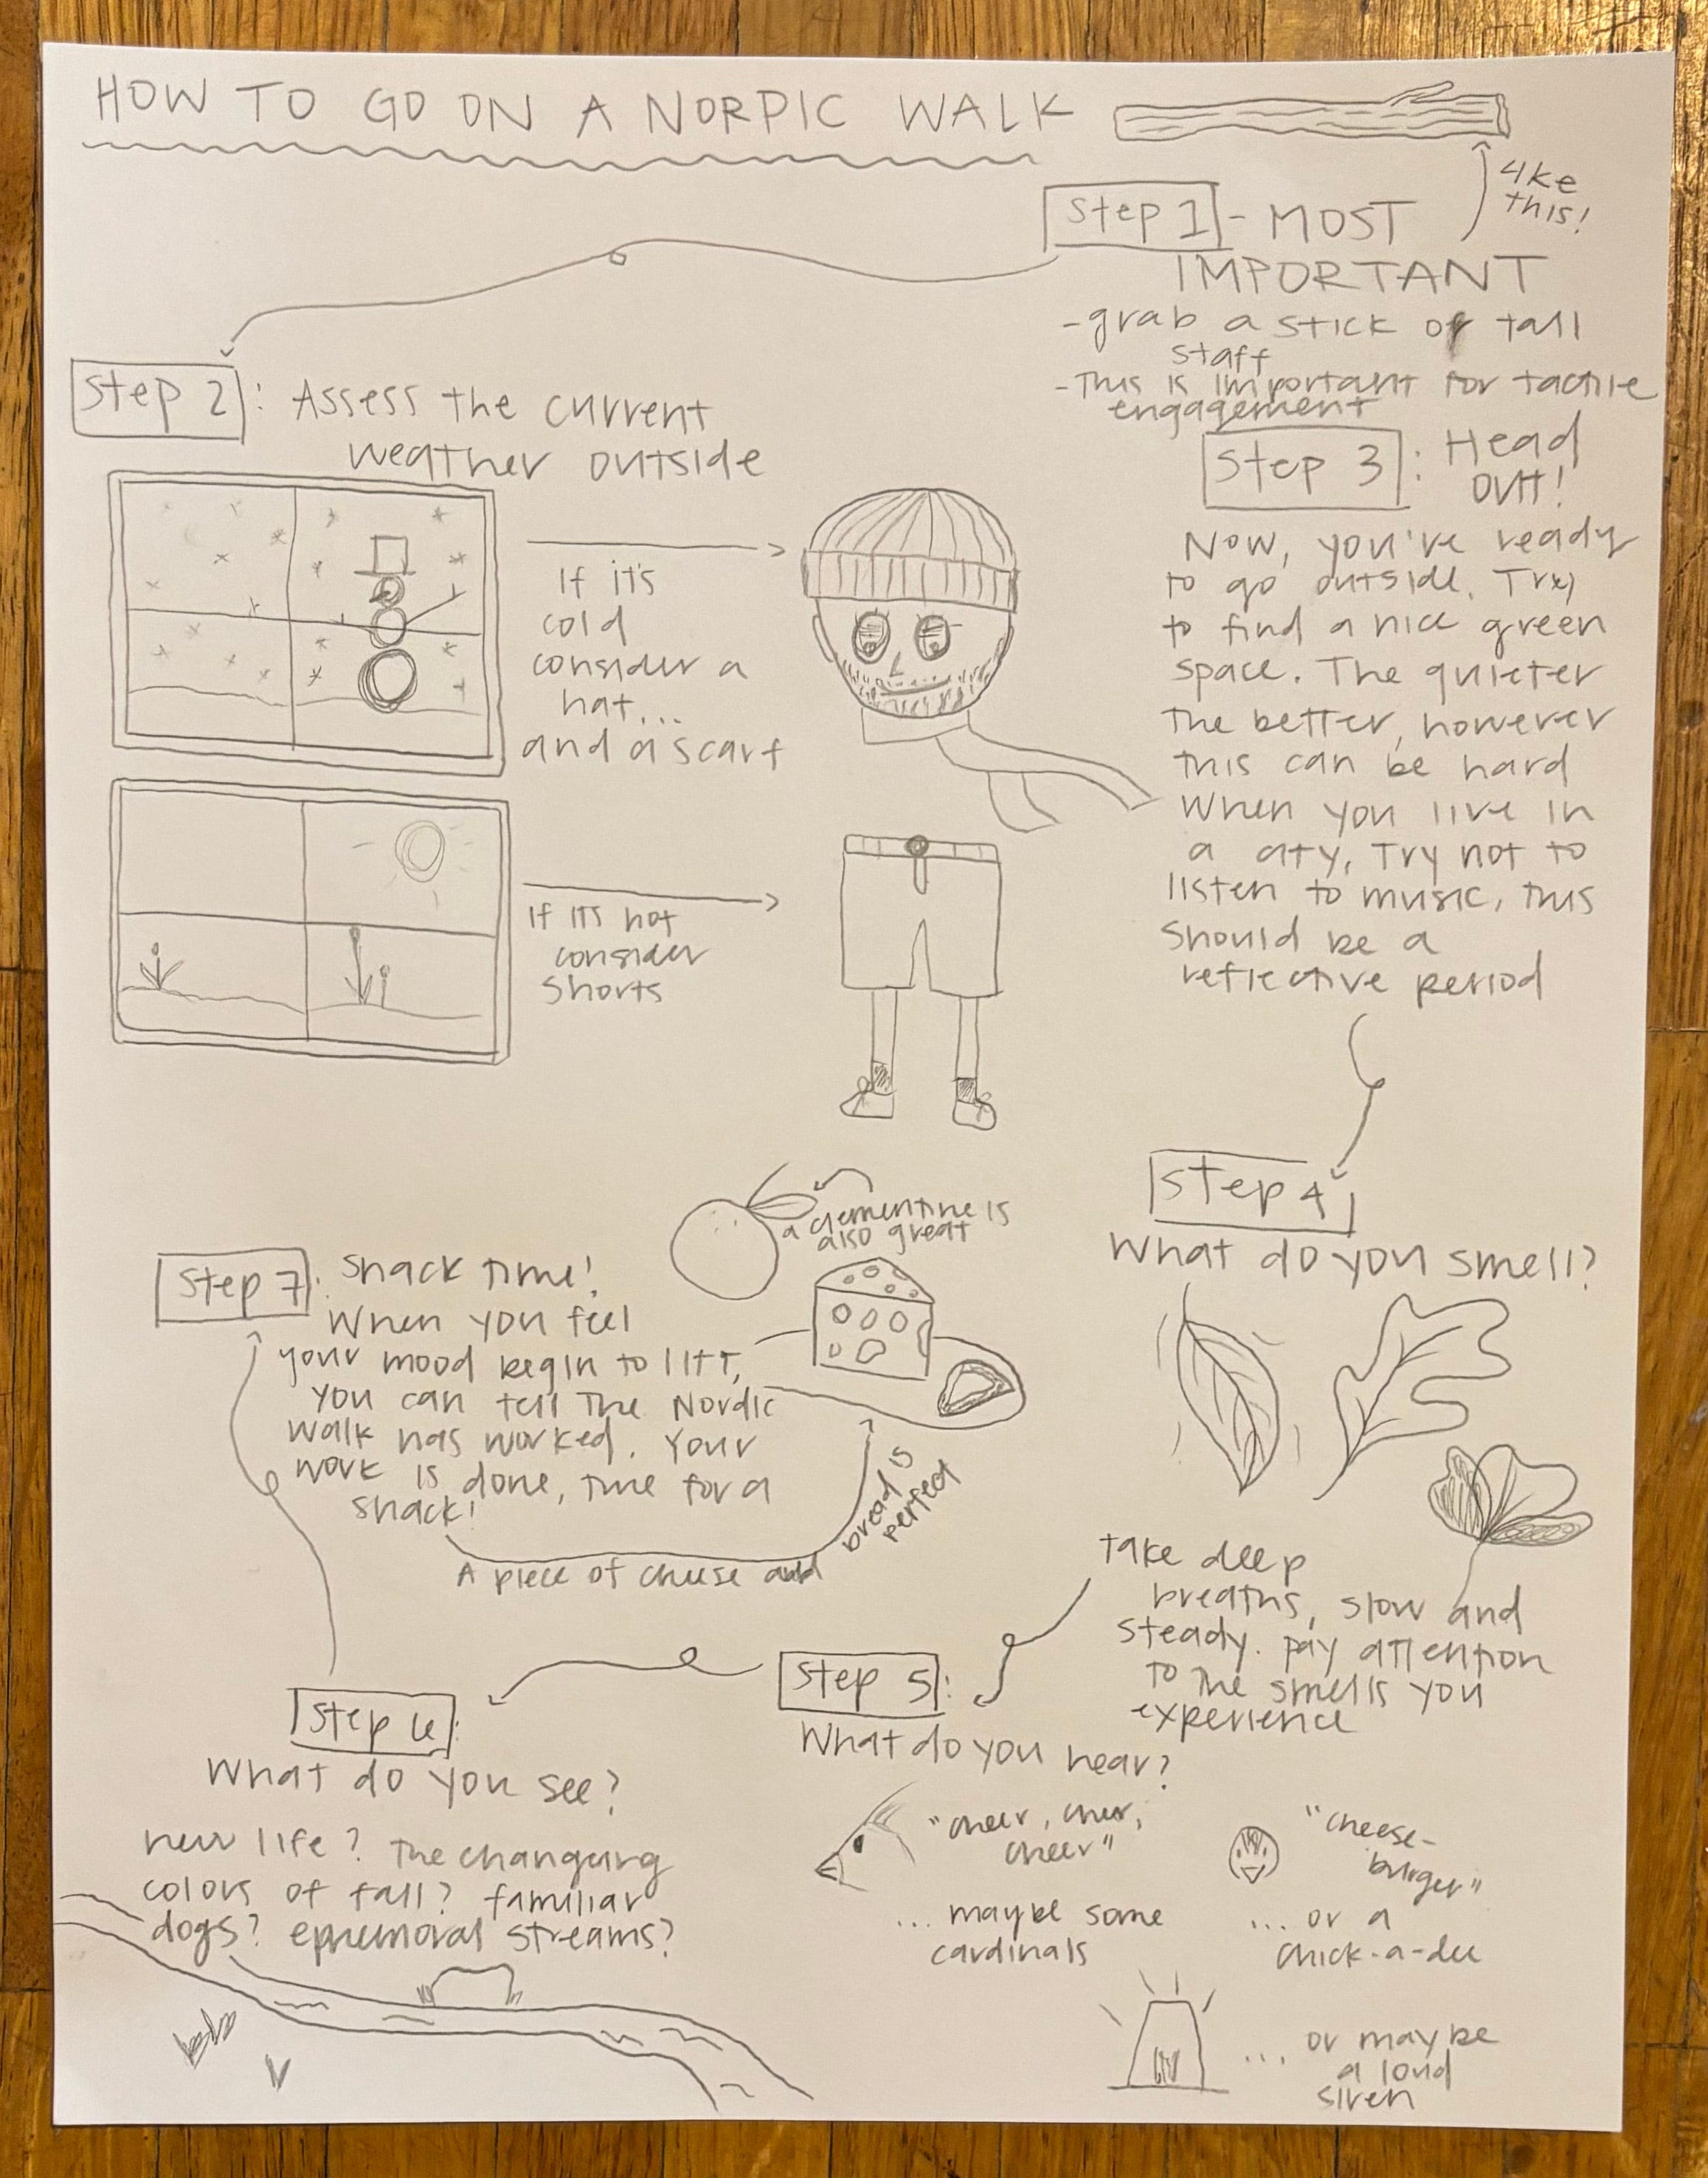 HOW TO GO ON A NORDIC WALK
like
this!
Step 1 - MOST
IMPORTANT
- grab a stick or tall
staff
- This is important for tactile
engagement
Step 2: Assess the current
weather outside
If it's
cold
consider a
hat...
and a scarf
If it's hot
consider
shorts
Step 3: Head
out!
Now, you've ready
to go outside. Try
to find a nice green
space. The quieter
the better, however
this can be hard
when you live in
a city, Try not to
listen to music, this
should be a
reflective period
Step 4
What do you smell?
Take deep
breaths, slow and
steady. pay attention
to the smells you
experience
Step 5:
What do you hear?
"cheer, cheer,
cheer"
... maybe some
cardinals
"cheese-
burger"
... or a
chick-a-dee
... or maybe
a loud
siren
Step 6:
What do you see?
new life? The changing
colors of fall? familiar
dogs? ephemoral streams?
Step 7: Snack time!
When you feel
your mood begin to lift,
you can tell the Nordic
walk has worked. Your
work is done, time for a
snack!
A piece of cheese and
bread is
perfect
a clementine is
also great